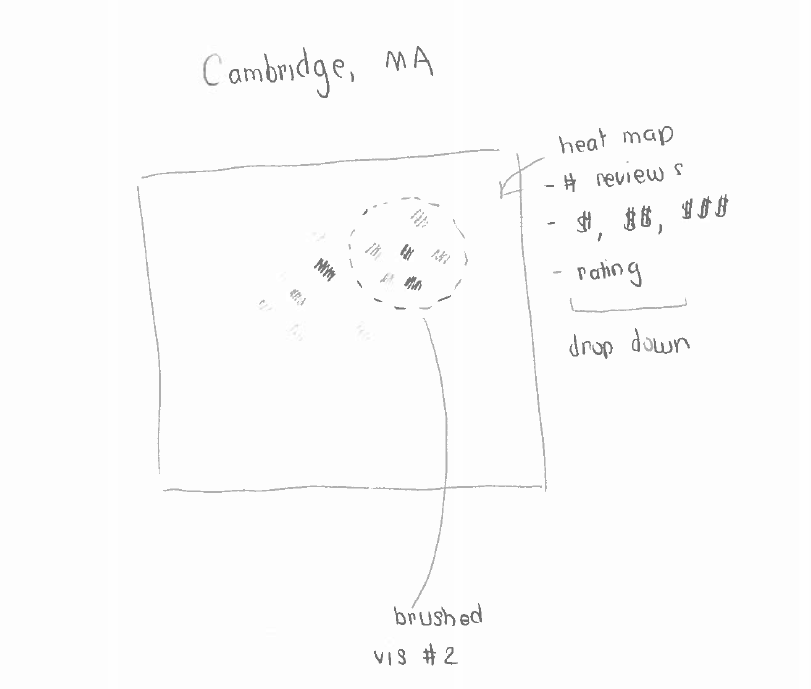 Cambridge, MA
heat map
- # reviews
- $, $$, $$$
- rating
drop down
brushed
vis #2